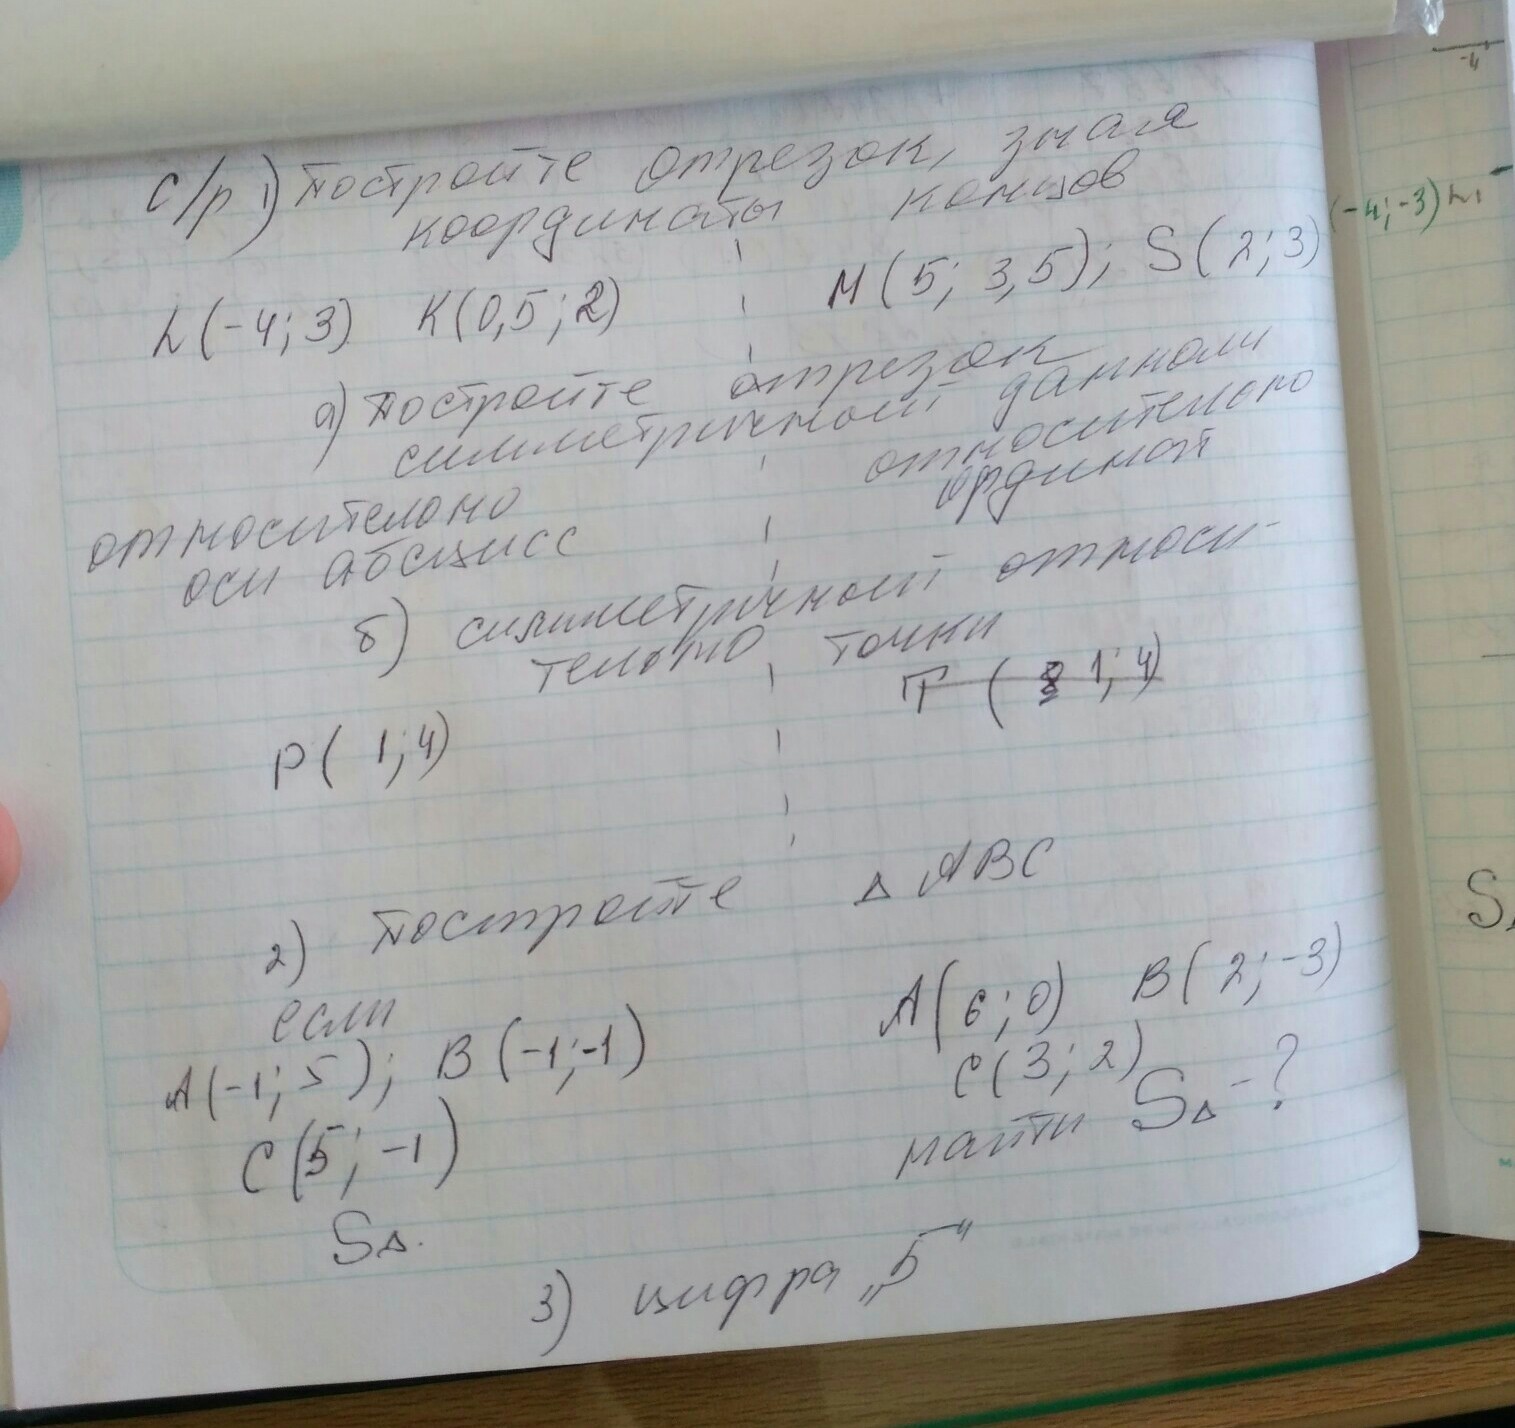 С/р 1) Постройте отрезок, зная
координаты концов
L(-4; 3) K(0,5; 2)
M(5; 3,5); S(2; 3)
а) Постройте отрезок
симметричный данном
относительно
оси абсцисс
относительно
ординат
б) симметричный относи-
тельно точки
P(1; 4)
T( 1; 4)
2) Постройте △ ABC
если
A(-1; 5); B(-1; -1)
C(5; -1)
S△.
A(6; 0) B(2; -3)
C(3; 2)
найти S△ - ?
3) цифра „5"
-4
(-4; -3) L1
S△